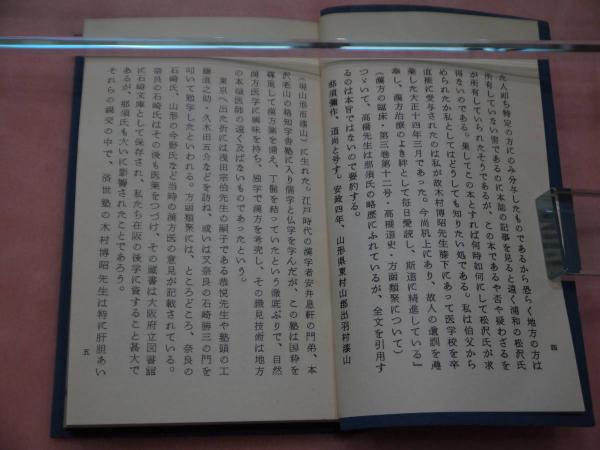 た人即ち特定の方にのみ分与したものであるから恐らく地方の方は
所有していない筈であるのに本誌の記事を見ると遠く浦和の松沢氏
が所有していられたそうであるが、この本であるや否や疑わざるを
得ないのである。果してこの本とすれば何時如何にして松沢氏が求
められたか私としてはどうしても知りたい処である。私は伯父から
直接に愛与されたのは私が故木村博昭先生膝下にあって医学校を卒
業した大正十四年三月であった。今尚机上にあり、故人の遺訓を遵
奉し、漢方治療のよき絆として毎日愛読し、斯道に精進している』
（漢方の臨床・第三巻第十二号・高橋道史・方函類聚について）
つづいて、高橋先生は那須氏の略歴にふれているが、全文を引用す
るのは本旨ではないので要約する。
那須彌作、道尚と号す。安政四年、山形県東村山郡出羽村漆山
四
（現山形市漆山）に生れた。江戸時代の漢学者安井息軒の門弟、本
沢老山の格知学舎塾に入り儒学と仏学を学んだが、この塾は国粋を
篠重して漢方薬を備え、丁髷を結っていたという徹底ぶりで、自然
漢方医学に興味を持ち、独学で漢方を考究し、その識見技術は地方
の本職医師の遠く及ばないものであったという。
東京へ出た折には浅田宗伯先生の嗣子である恭悦先生や塾頭の工
藤道之助・久木田五介などを訪ね、或いは又奈良の石崎勝三の門を
叩いて勉学したといわれる。方函類聚には、ところどころ、奈良の
石崎氏、山形の今野氏など当時の漢方医の意見が記載されている。
奈良の石崎氏はその後も医業をつづけ、その蔵書は大阪府立図書館
に石崎文庫として保存され、私たち在阪の後学に資すること甚大で
あるが、那須氏も大いに影響されたことであろう。
それらの親交の中で、済世塾の木村博昭先生は特に肝胆あい
五